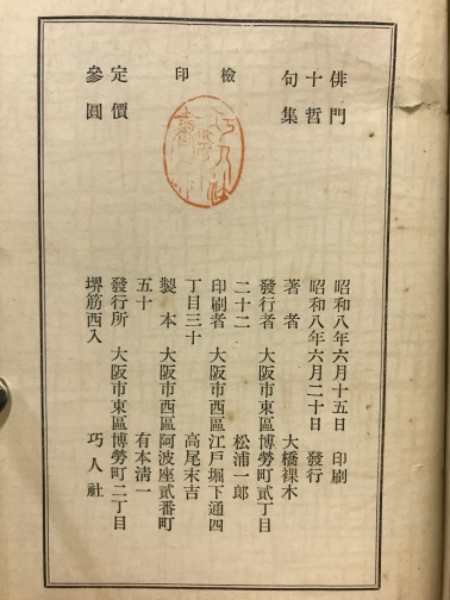 俳門
十哲
句集
檢印
定價
參圓
昭和八年六月十五日 印刷
昭和八年六月二十日 發行
著者 大橋裸木
發行者 大阪市東區博勞町貳丁目
二十二 松浦一郎
印刷者 大阪市西區江戸堀下通四
丁目三十 高尾末吉
製本 大阪市西區阿波座貳番町
五十 有本清一
發行所 大阪市東區博勞町二丁目
堺筋西入 巧人社